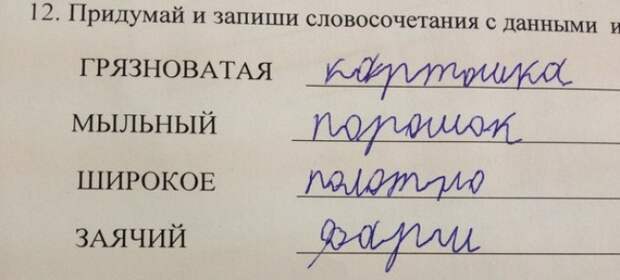 12. Придумай и запиши словосочетания с данными и
ГРЯЗНОВАТАЯ картошка
МЫЛЬНЫЙ порошок
ШИРОКОЕ полотно
ЗАЯЧИЙ фарш